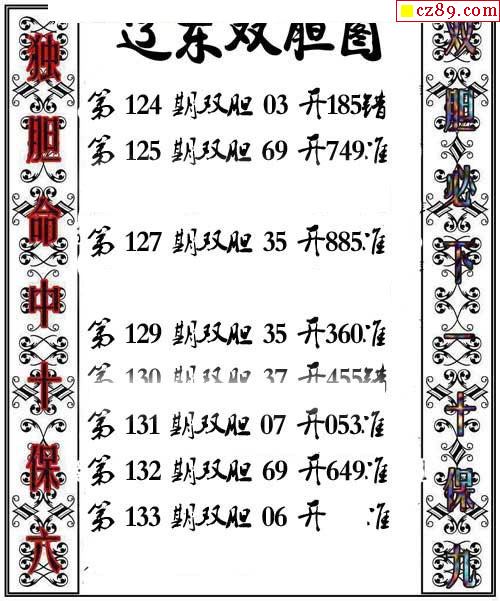 cz89.com
辽东双胆图
第 124 期双胆 03 开185错
第 125 期双胆 69 开749准
第 127 期双胆 35 开885准
第 129 期双胆 35 开360准
第 130 期双胆 37 开455错
第 131 期双胆 07 开053准
第 132 期双胆 69 开649准
第 133 期双胆 06 开 准
独胆命中十保六
双胆必下一十保九